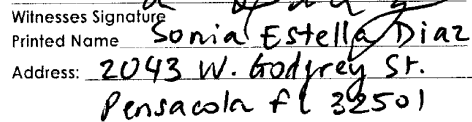 Witnesses Signature
Printed Name Sonia Estella Diaz
Address: 2043 W. Godfrey St.
Pensacola fl 32501